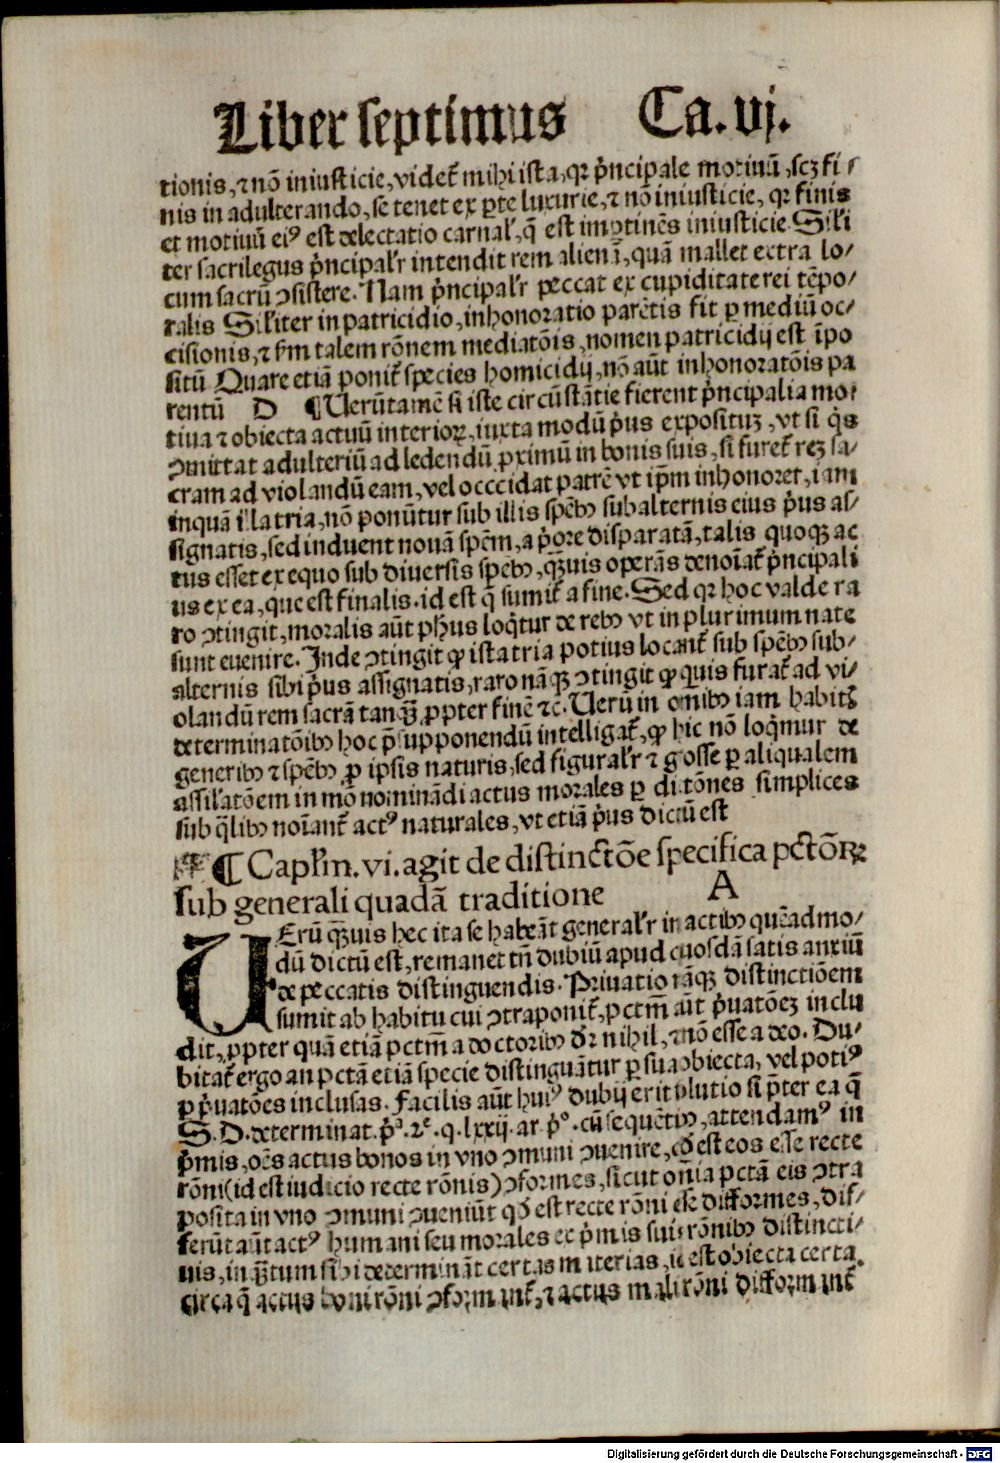 Liber septimus Ca. vj.
tionis, ⁊ nō iniusticie, videt᷑ mihi ista, qꝛ p̄ncipale motiuū, scꝫ fi
nis in adulterando, se tenet ex ꝑte luxurie, ⁊ nō iniusticie, qꝛ finis
et motiuū eiꝰ est delectatio carnal', q̄ est imꝑtinēs iniusticie Sil'i
ter sacrilegus p̄ncipal'r intendit rem alienā, quā mallet extra lo/
cum sacrū ꝯsistere. Nam p̄ncipal'r peccat ex cupiditate rei tēpo/
ralis Sil'iter in patricidio, inhonoratio parētis fit ꝑ mediū oc/
cisionis, ⁊ s'm talem rōnem mediatōis, nomen patricidij est īpo
sitū Quare etiā ponit᷑ species homicidij, nō aūt inhonoratōis pa
rentū D ¶ Uerūtamē si iste circūstātie fierent p̄ncipalia mo/
tiua ⁊ obiecta actuū interioꝝ, iuxta modū p̄us expositū, vt si q̇s
ꝯmittat adulteriū ad ledendū ꝓximū in bonis suis, si furet᷑ reꝫ sa/
cram ad violandū eam, vel occcidat patrē vt ip̄m inhonoret, iam
inquā illa tria, nō ponūtur sub illis spēbꝰ subalternis eius p̄us as/
signatis, sed induent nouā spēm, a p̄ore disparatā, talis quoqꝫ ac
tus esset ex equo sub diuersis spēbꝰ, qꝫuis operās denoīat᷑ p̄ncipali
us ex ea, que est finalis. id est q̄ sumit᷑ a fine. Sed qꝛ hoc valde ra
ro ꝯtingit, moralis aūt ph'us loq̇tur de rebꝰ vt in plurimum nate
sunt euenire. Inde ꝯtingit ꝙ ista tria potius locant᷑ sub spēbꝰ sub/
alternis sibi p̄us assignatis, raro nāqꝫ ꝯtingit ꝙ quis furat᷑ ad vi/
olandū rem sacrā tanqꝫ ꝓpter finē ⁊c. Uerū in omnibꝰ iam habitꝭ
determinatōibꝰ hoc p̄supponendū intelligat᷑, ꝙ hic nō loq̇mur de
generibꝰ ⁊ spēbꝰ ꝓ ipsis naturis, sed figural'r ⁊ g̊sse ꝑ aliqualem
assil'atōem in mō nominādi actus morales ꝑ dictōnes simplices
sub q̇libꝰ noīant᷑ actꝰ naturales, vt etiā p̄us dictū est
¶ Capl'm. vi. agit de distinctōe specifica pctōꝝ
sub generali quadā traditione A
UErū qꝫuis hec ita se habeāt general'r in actibꝰ quēadmo/
dū dictū est, remanet tn̄ dubiū apud quosdā satis anxiū
de peccatis distinguendis. Priuatio nāqꝫ distinctiōem
sumit ab habitu cui ꝯtraponit᷑, pctm̄ aūt p̄uatōeꝫ inclu
dit, ꝓpter quā etiā pctm̄ a doctoribꝰ dr̄ nihil, ⁊ nō esse a deo. Du/
bitat᷑ ergo an pctā etiā specie distinguātur ꝑ sua obiecta, vel potiꝰ
ꝑ p̄uatōes inclusas. Facilis aūt huiꝰ dubij erit solutio si p̄ter ea q̄
S. D. determinat. p̄ᵃ. 2ᵉ. q. lxxij. ar. pº. cū sequētibꝰ, attendamꝰ in
p̄mis, oēs actus bonos in vno ꝯmuni ꝯuenire, qd̄ est eos esse recte
rōni (id est iudicio recte rōnis) ꝯformes, sicut om̄ia pctā eis ꝯtra
posita in vno ꝯmuni ꝯueniūt qd̄ est recte rōni esse difformes, dif/
ferūt aūt actꝰ humani seu morales ex p̄mis suis rōnibꝰ distincti/
uis, in qꝫtum sibi determināt certas materias, id est obiecta certa.
circa q̄ actus boni rōni ꝯformant᷑, ⁊ actus mali rōni difformant᷑
Digitalisierung gefördert durch die Deutsche Forschungsgemeinschaft - DFG